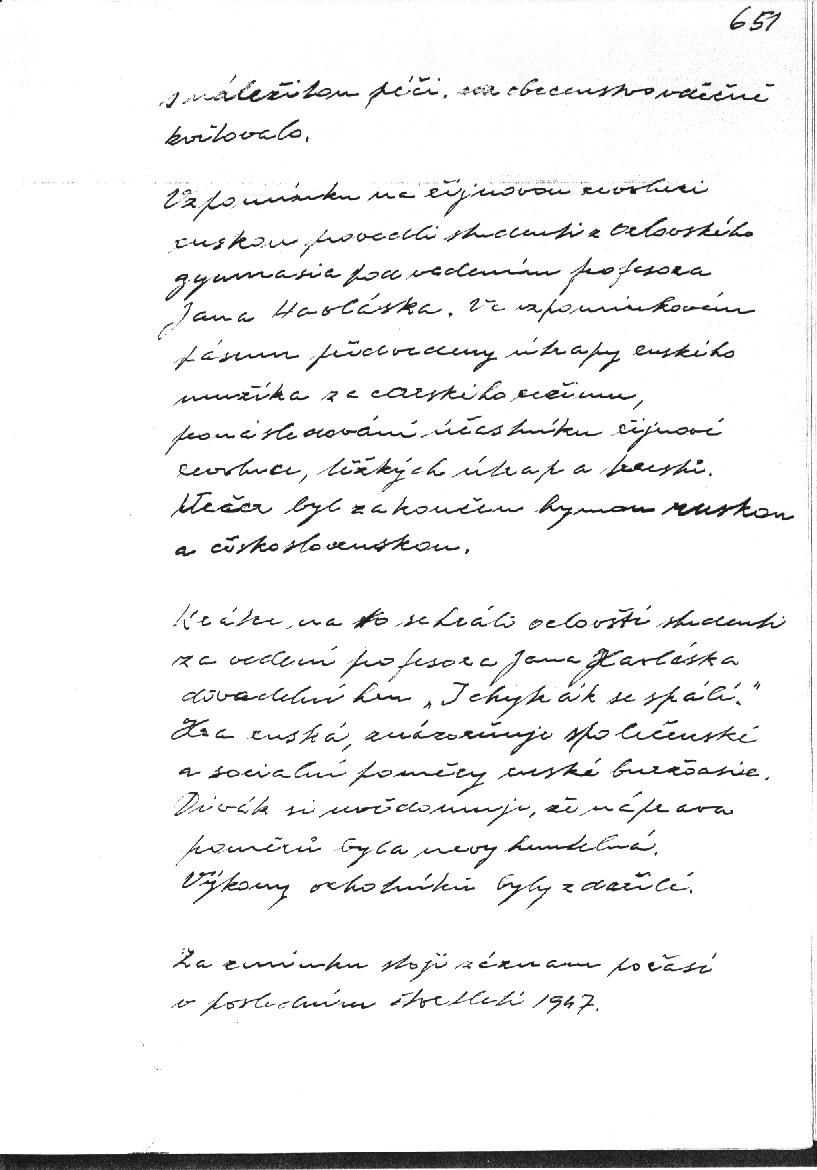 651
s náležitou péčí, což obecenstvo vděčně
kvitovalo.
Vzpomínku na říjnovou revoluci
ruskou provedli studenti z orlovského
gymnasia pod vedením profesora
Jana Havláska. Ve vzpomínkovém
pásmu předvedeny útrapy ruského
mužíka za carského režimu,
pronásledování účastníků říjnové
revoluce, těžkých útrap a
Večer byl zakončen hymnou ruskou
a československou.
Krátce na to sehráli orlovští studenti
za vedení profesora Jana Havláska
divadelní hru „I chytrák se spálí."
Hra ruská, znázorňuje společenské
a socialní poměry ruské buržoasie.
Divák si uvědomuje, že náprava
poměrů byla nevyhnutelná.
Výkony ochotníků byly zdařilé.
Za zmínku stojí záznam počasí
v posledním čtvrtletí 1947.